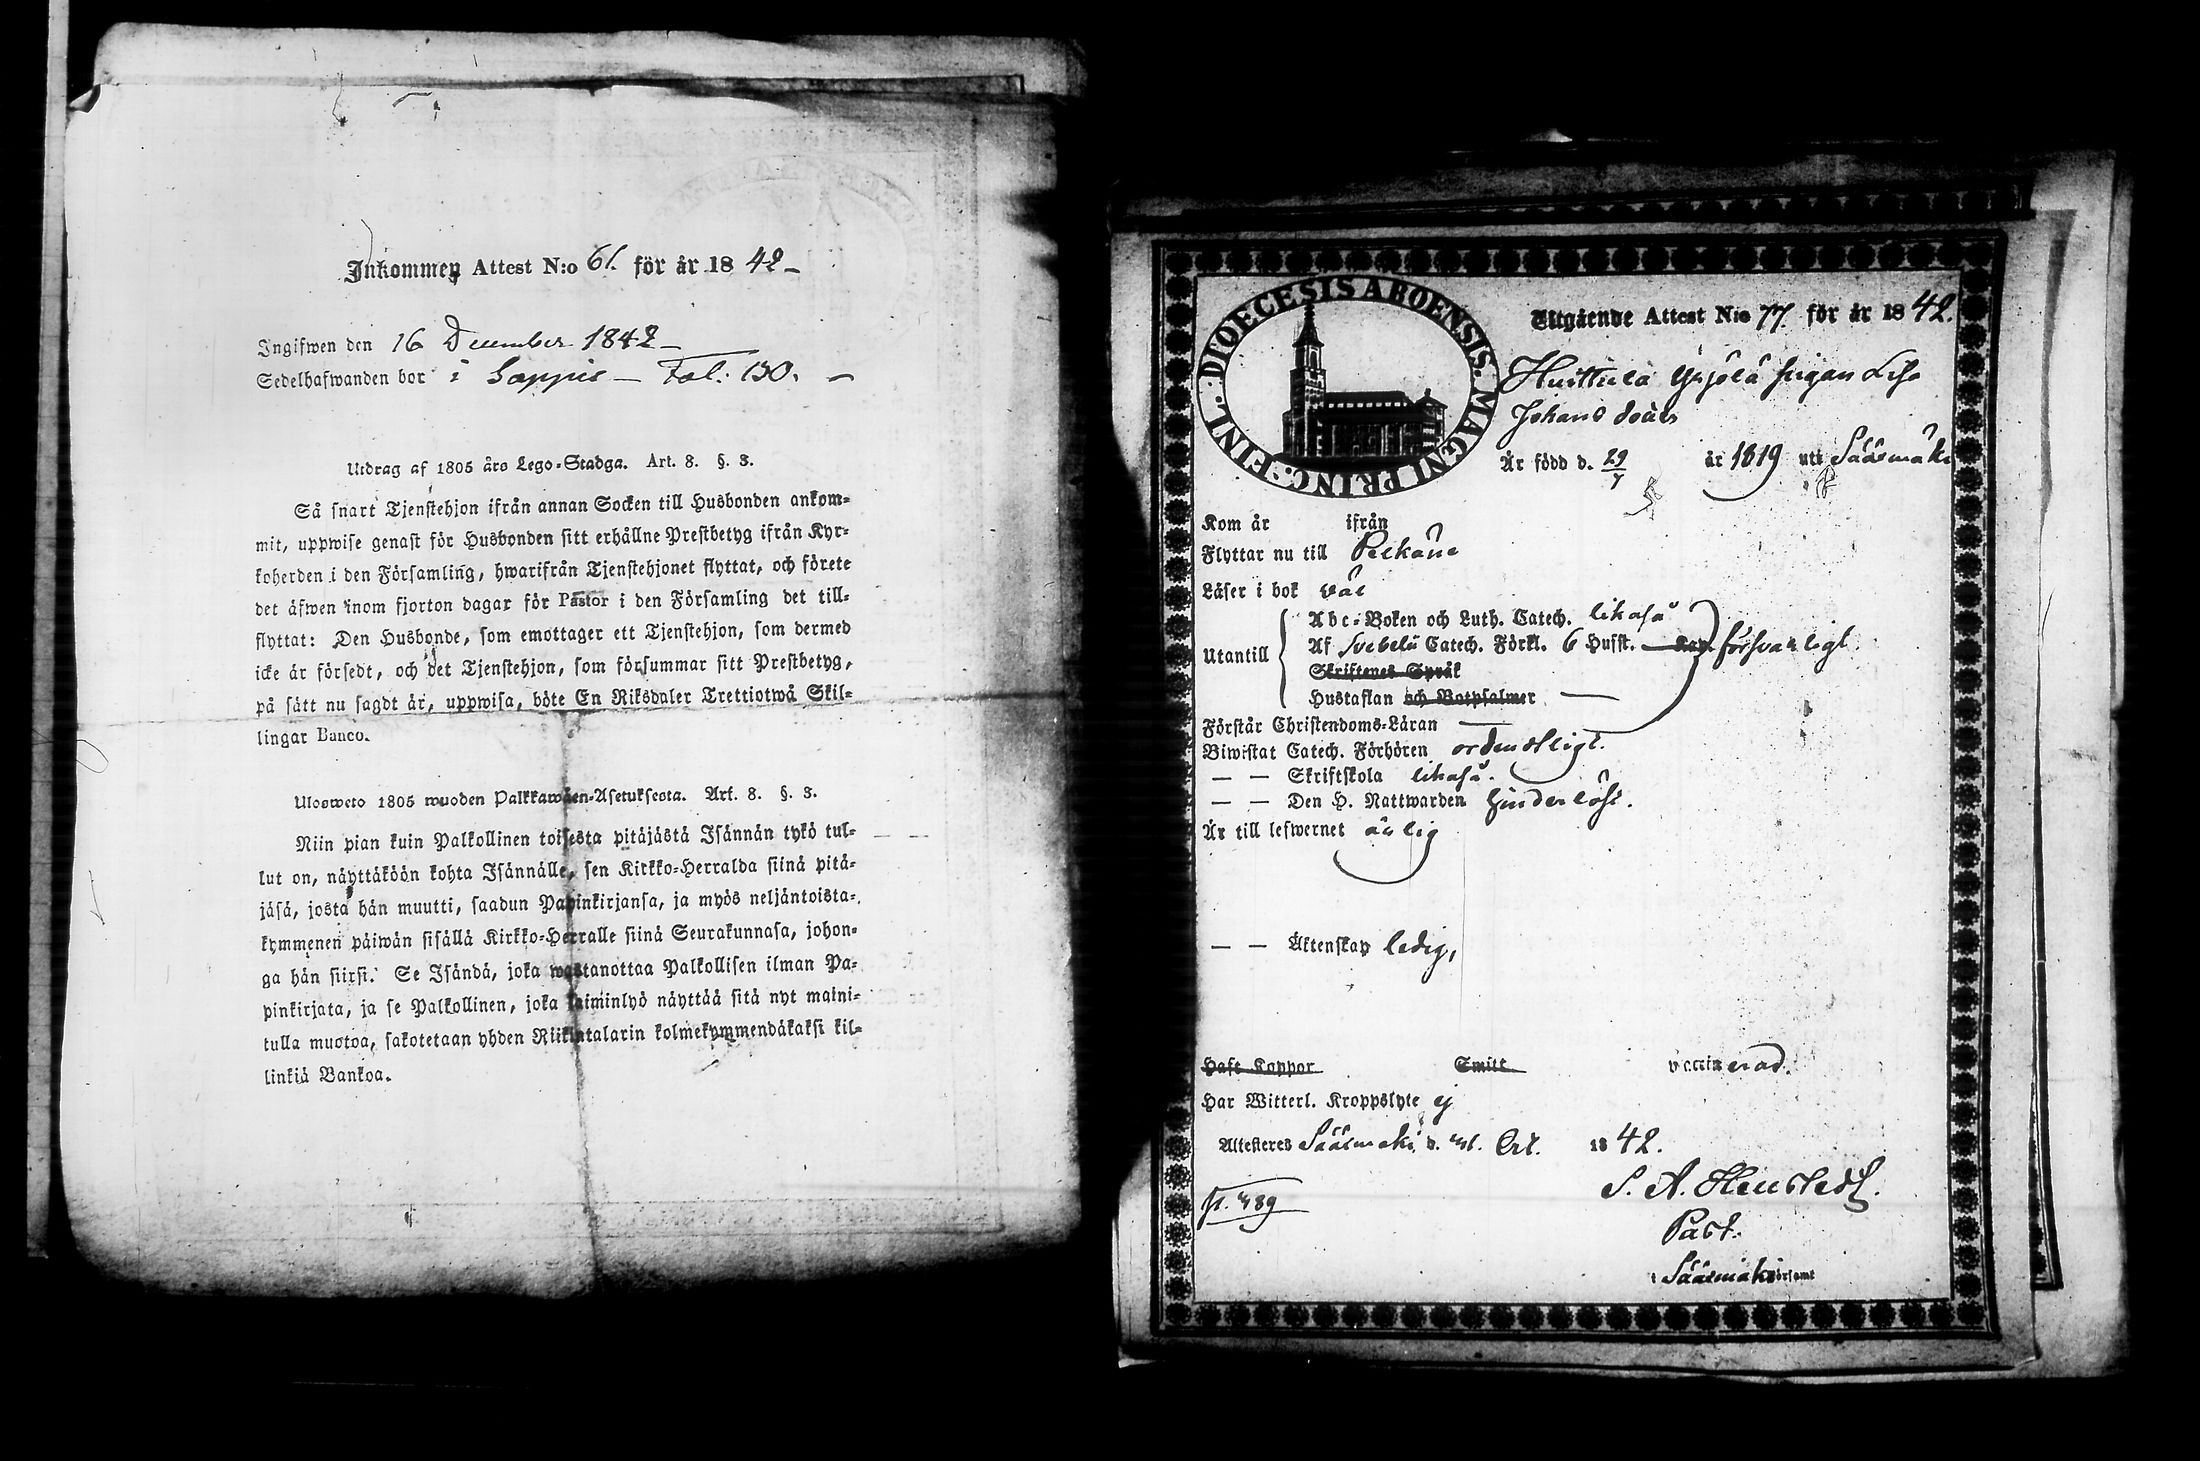 Inkommen Attest N:o 61. för år 18 42
Ingifwen den 16 December 1842
Sedelhafwanden bor i Sappis — Fol: 130.
Utdrag af 1805 års Lego-Stadga. Art. 8. §. 3.
Så snart Tjenstehjon ifrån annan Socken till Husbonden ankom-
mit, uppwise genast för Husbonden sitt erhållne Prestbetyg ifrån Kyr-
koherden i den Församling, hwarifrån Tjenstehjonet flyttat, och förete
det äfwen inom fjorton dagar för Pastor i den Församling det till-
flyttat: Den Husbonde, som emottager ett Tjenstehjon, som dermed
icke är försedt, och det Tjenstehjon, som försummar sitt Prestbetyg,
på sätt nu sagdt är, uppwisa, böte En Riksdaler Trettiotwå Skil-
lingar Banco.
Ulosweto 1805 wuoden Palkkawäen-Asetuksesta. Art. 8. §. 3.
Niin pian kuin Palkollinen toisesta pitäjästä Isännän tykö tul-
lut on, näyttäköön kohta Isännälle, sen Kirkko-Herralda siinä pitä-
jäsä, josta hän muutti, saadun Papinkirjansa, ja myös neljäntoista-
kymmenen päiwän sisällä Kirkko-Herralle siinä Seurakunnasa, johon-
ga hän siirsi. Se Isändä, joka wastanottaa Palkollisen ilman Pa-
pinkirjata, ja se Palkollinen, joka laiminlyö näyttää sitä nyt maini-
tulla muotoa, sakotetaan yhden Riikintalarin kolmekymmendäkaksi kil-
linkiä Bankoa.
DIOECESIS ABOENSIS. MAGNI PRINC: FINL.:
Utgående Attest N:o 77. för år 18 42.
Huittula Yrjölä pigan Lisa
Johans doter
Är född d. 29/7 år 1819 uti Sääsmäki
Kom år ifrån
Flyttar nu till Pelkäne
Läser i bok väl
Utantill
Abc-Boken och Luth. Catech. likaså
Af Svebelii Catech. Förkl. 6 Husst. försvarligt
Skriftenes Språk
Hustaflan och Botpsalmer
Förstår Christendoms-Läran
Biwistat Catech. Förhören ordentligt.
— — Skriftskola likaså.
— — Den H. Nattwarden hinderlöst.
Är till lefwernet ärlig
— — Äktenskap ledig,
Haft Koppor Smitt vaccinerad.
Har Witterl. Kroppslyte ej
Attesteres Sääsmäki, d. Oct. 18 42.
p. 489
Past.
i Sääsmäki församl